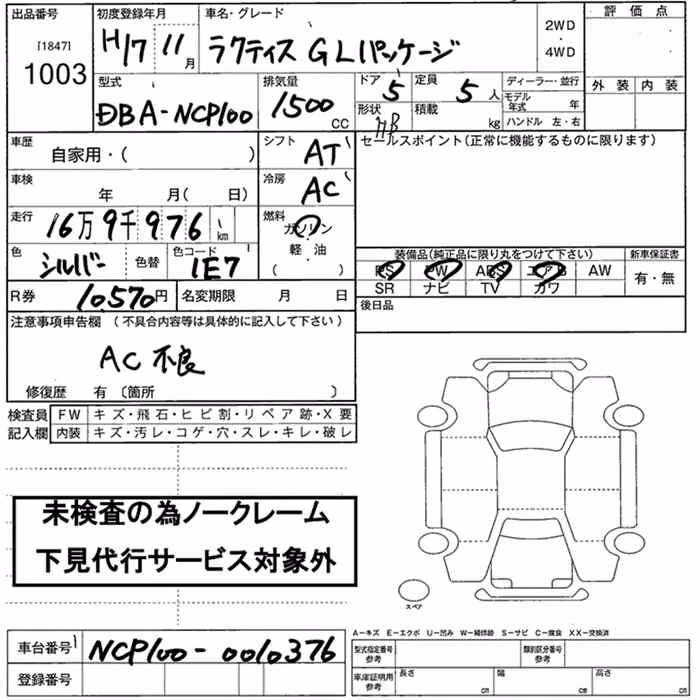 出品番号 初度登録年月 車名・グレード 評価点
[1847] 1003 H17 11月 ラクティス GLパッケージ 2WD・4WD
型式 排気量 ドア 5 定員 5人 ディーラー・並行 外装 内装
DBA-NCP100 1500cc 形状 HB 積載 kg モデル年式 年
ハンドル 左・右
車歴 自家用・( ) シフト AT セールスポイント(正常に機能するものに限ります)
車検 年 月( 日) 冷房 AC
走行 16万9千976 km 燃料 ガソリン
軽・油
( )
色 シルバー 色替 色コード 1E7
装備品(純正品に限り丸をつけて下さい) 新車保証書
PS PW ABS エアB AW 有・無
SR ナビ TV カワ
R券 10,570円 名変期限 月 日 後日品
注意事項申告欄(不具合内容等は具体的に記入して下さい)
AC 不良
修復歴 有〔箇所 〕
検査員 FW キズ・飛石・ヒビ割・リペア跡・X要
記入欄 内装 キズ・汚レ・コゲ・穴・スレ・キレ・破レ
未検査の為ノークレーム
下見代行サービス対象外
スペア
A−キズ E−エクボ U−凹み W−補修跡 S−サビ C−腐食 XX−交換済
車台番号 NCP100-0010376
登録番号
型式指定番号 参考 類別区分番号 参考
車庫証明用 参考 長さ cm 幅 cm 高さ cm